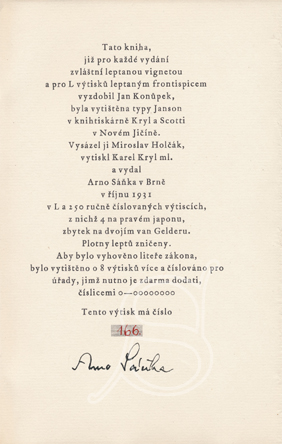 Tato kniha,
jíž pro každé vydání
zvláštní leptanou vignetou
a pro L výtisků leptaným frontispicem
vyzdobil Jan Konůpek,
byla vytištěna typy Janson
v knihtiskárně Kryl a Scotti
v Novém Jičíně.
Vysázel ji Miroslav Holčák,
vytiskl Karel Kryl ml.
a vydal
Arno Sáňka v Brně
v říjnu 1931
v L a 250 ručně číslovaných výtiscích,
z nichž 4 na pravém japonu,
zbytek na dvojím van Gelderu.
Plotny leptů zničeny.
Aby bylo vyhověno liteře zákona,
bylo vytištěno o 8 výtisků více a číslováno pro
úřady, jimž nutno je zdarma dodati,
číslicemi 0—00000000
Tento výtisk má číslo
166.
Arno Sáňka